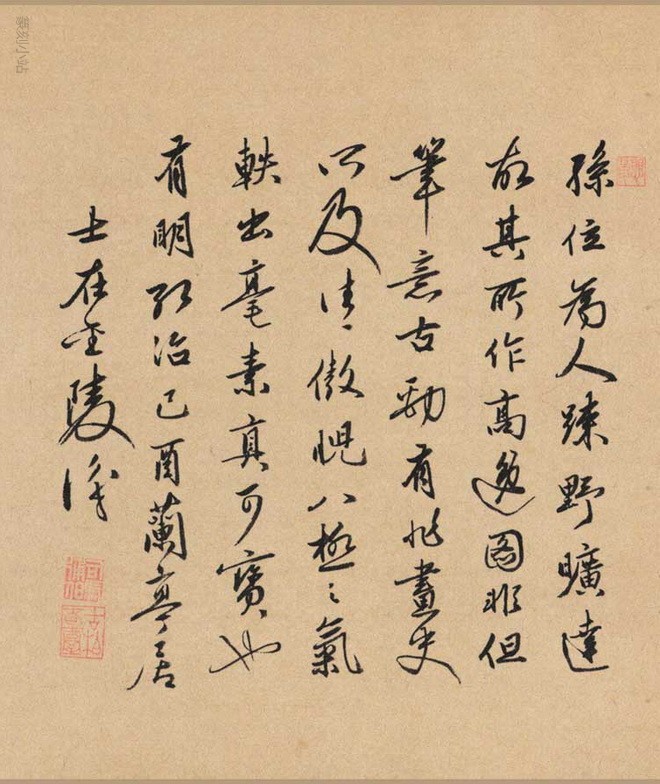 篆刻小站
孫位為人踈野曠達
故其所作高逸圖非但
筆意古勁有非畫史
所及傲睨八極之氣
軼出毫素真可寶也
有明弘治己酉蘭亭居
士在金陵識